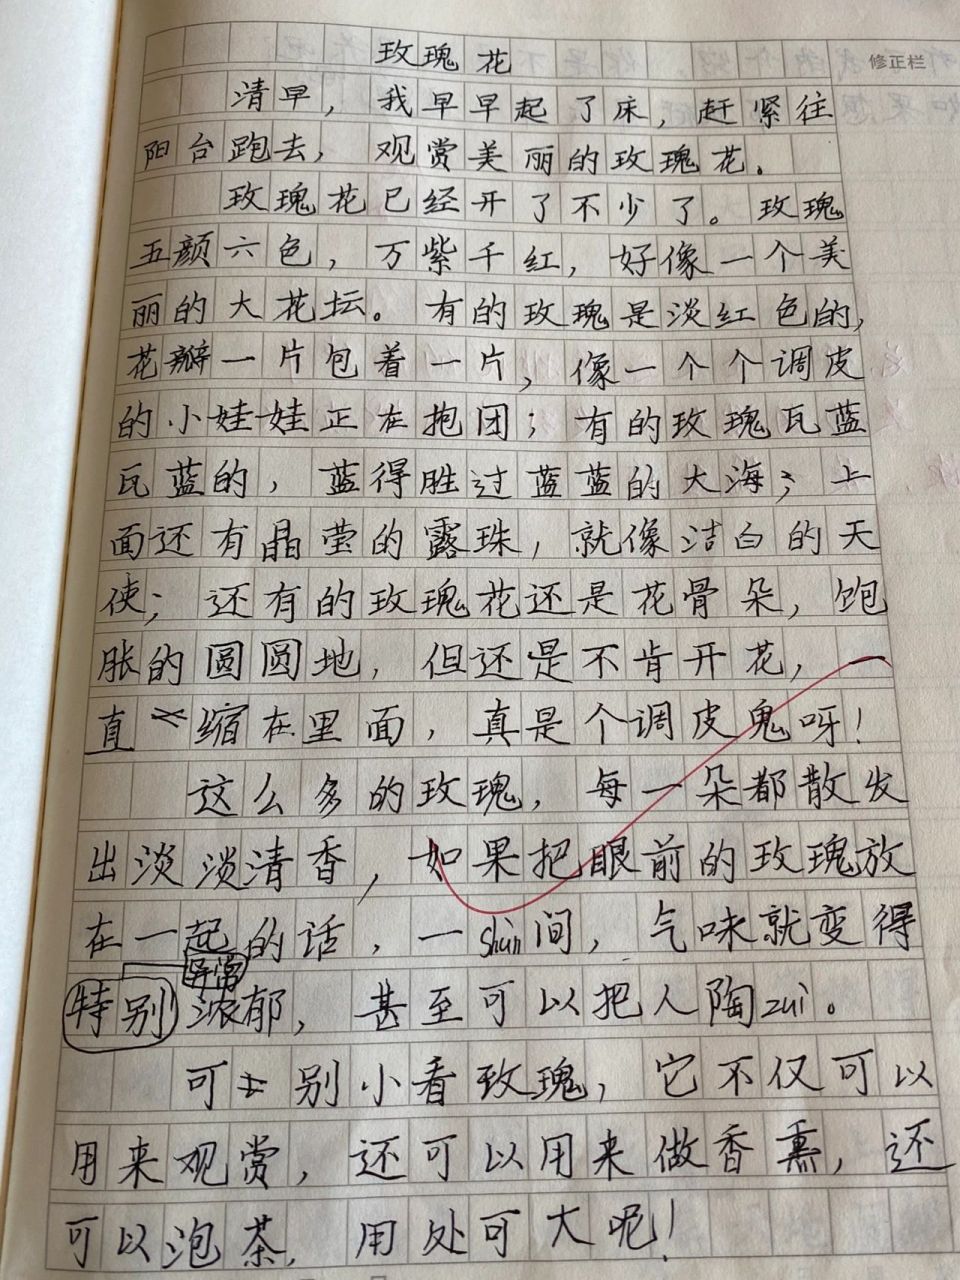 玫瑰花
修正栏
清早，我早早起了床，赶紧往
阳台跑去，观赏美丽的玫瑰花。
玫瑰花已经开了不少了。玫瑰
五颜六色，万紫千红，好像一个美
丽的大花坛。有的玫瑰是淡红色的，
花瓣一片包着一片，像一个个调皮
的小娃娃正在抱团；有的玫瑰瓦蓝
瓦蓝的，蓝得胜过蓝蓝的大海；上
面还有晶莹的露珠，就像洁白的天
使；还有的玫瑰花还是花骨朵，饱
胀的圆圆地，但还是不肯开花，一
直缩在里面，真是个调皮鬼呀！
这么多的玫瑰，每一朵都散发
出淡淡清香，如果把眼前的玫瑰放
在一起的话，一shùn间，气味就变得
异常
特别浓郁，甚至可以把人陶zuì。
可别小看玫瑰，它不仅可以
用来观赏，还可以用来做香熏，还
可以泡茶，用处可大呢！